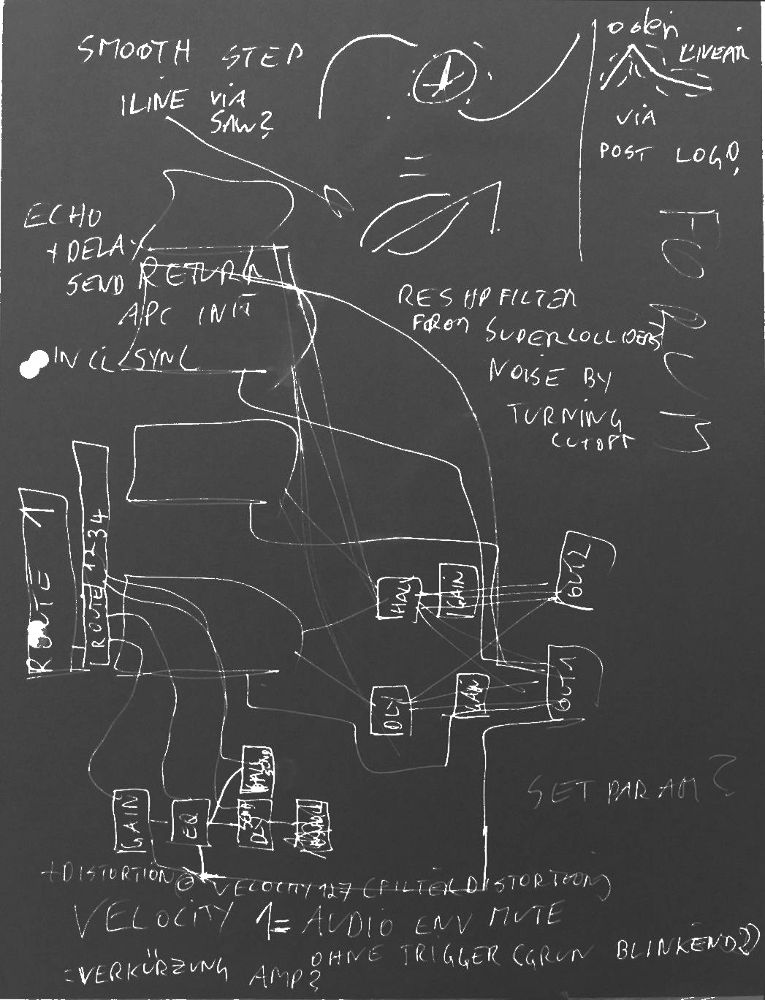 SMOOTH STEP
1LINE VIA
SAW?
oder
LINEAR
VIA
POST LOG?
ECHO
+ DELAY
SEND RETURN
APC INIT
INCL SYNC
RES HP FILTER
FROM SUPERCOLLIDERS
NOISE BY
TURNING
CUTOFF
FORUM
ROUTE 1
ROUTE 1234
HALL
GAIN
OUT2
DLY
GAIN
OUT1
GAIN
EQ
HALL
SEND
SEND
DLY
SET PARAM?
+ DISTORTION @ VELOCITY 127 (FILTER DISTORTION)
VELOCITY 1 = AUDIO ENV MUTE
OHNE TRIGGER (GRÜN BLINKEND?)
= VERKÜRZUNG AMP?